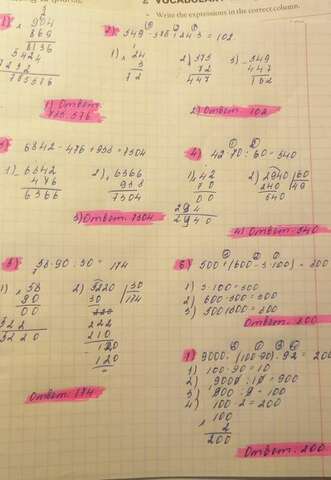 2 VOCABULAR
Write the expressions in the correct column.
1) × 904
869
8136
5424
7232
785576
1) Ответ.
785 576
2) 549 - 376 + 24 · 3 = 102
1) × 24
3
72
2) 375
72
447
3) - 549
447
102
2) Ответ. 102
6842 - 476 + 938 = 7304
1) 6842
476
6366
2) 6366
938
7304
3) Ответ. 7304
4) 42 · 70 : 60 = 340
1) × 42
70
00
294
2940
2) 2940 60
240 49
540
4) Ответ. 540
5) 58 · 90 : 30 = 174
1) × 58
90
00
522
5220
2) 5220 30
30 174
222
210
120
120
0
Ответ. 174
6) 500 + (600 - 3 · 100) = 800
1) 3 · 100 = 300
2) 600 - 300 = 300
3) 500 + 300 = 800
Ответ. 800
7) 9000 · (100 - 90) · 92 = 200
1) 100 - 90 = 10
2) 9000 : 10 = 900
3) 900 : 9 = 100
4) 100 · 2 = 200
100
2
200
Ответ. 200